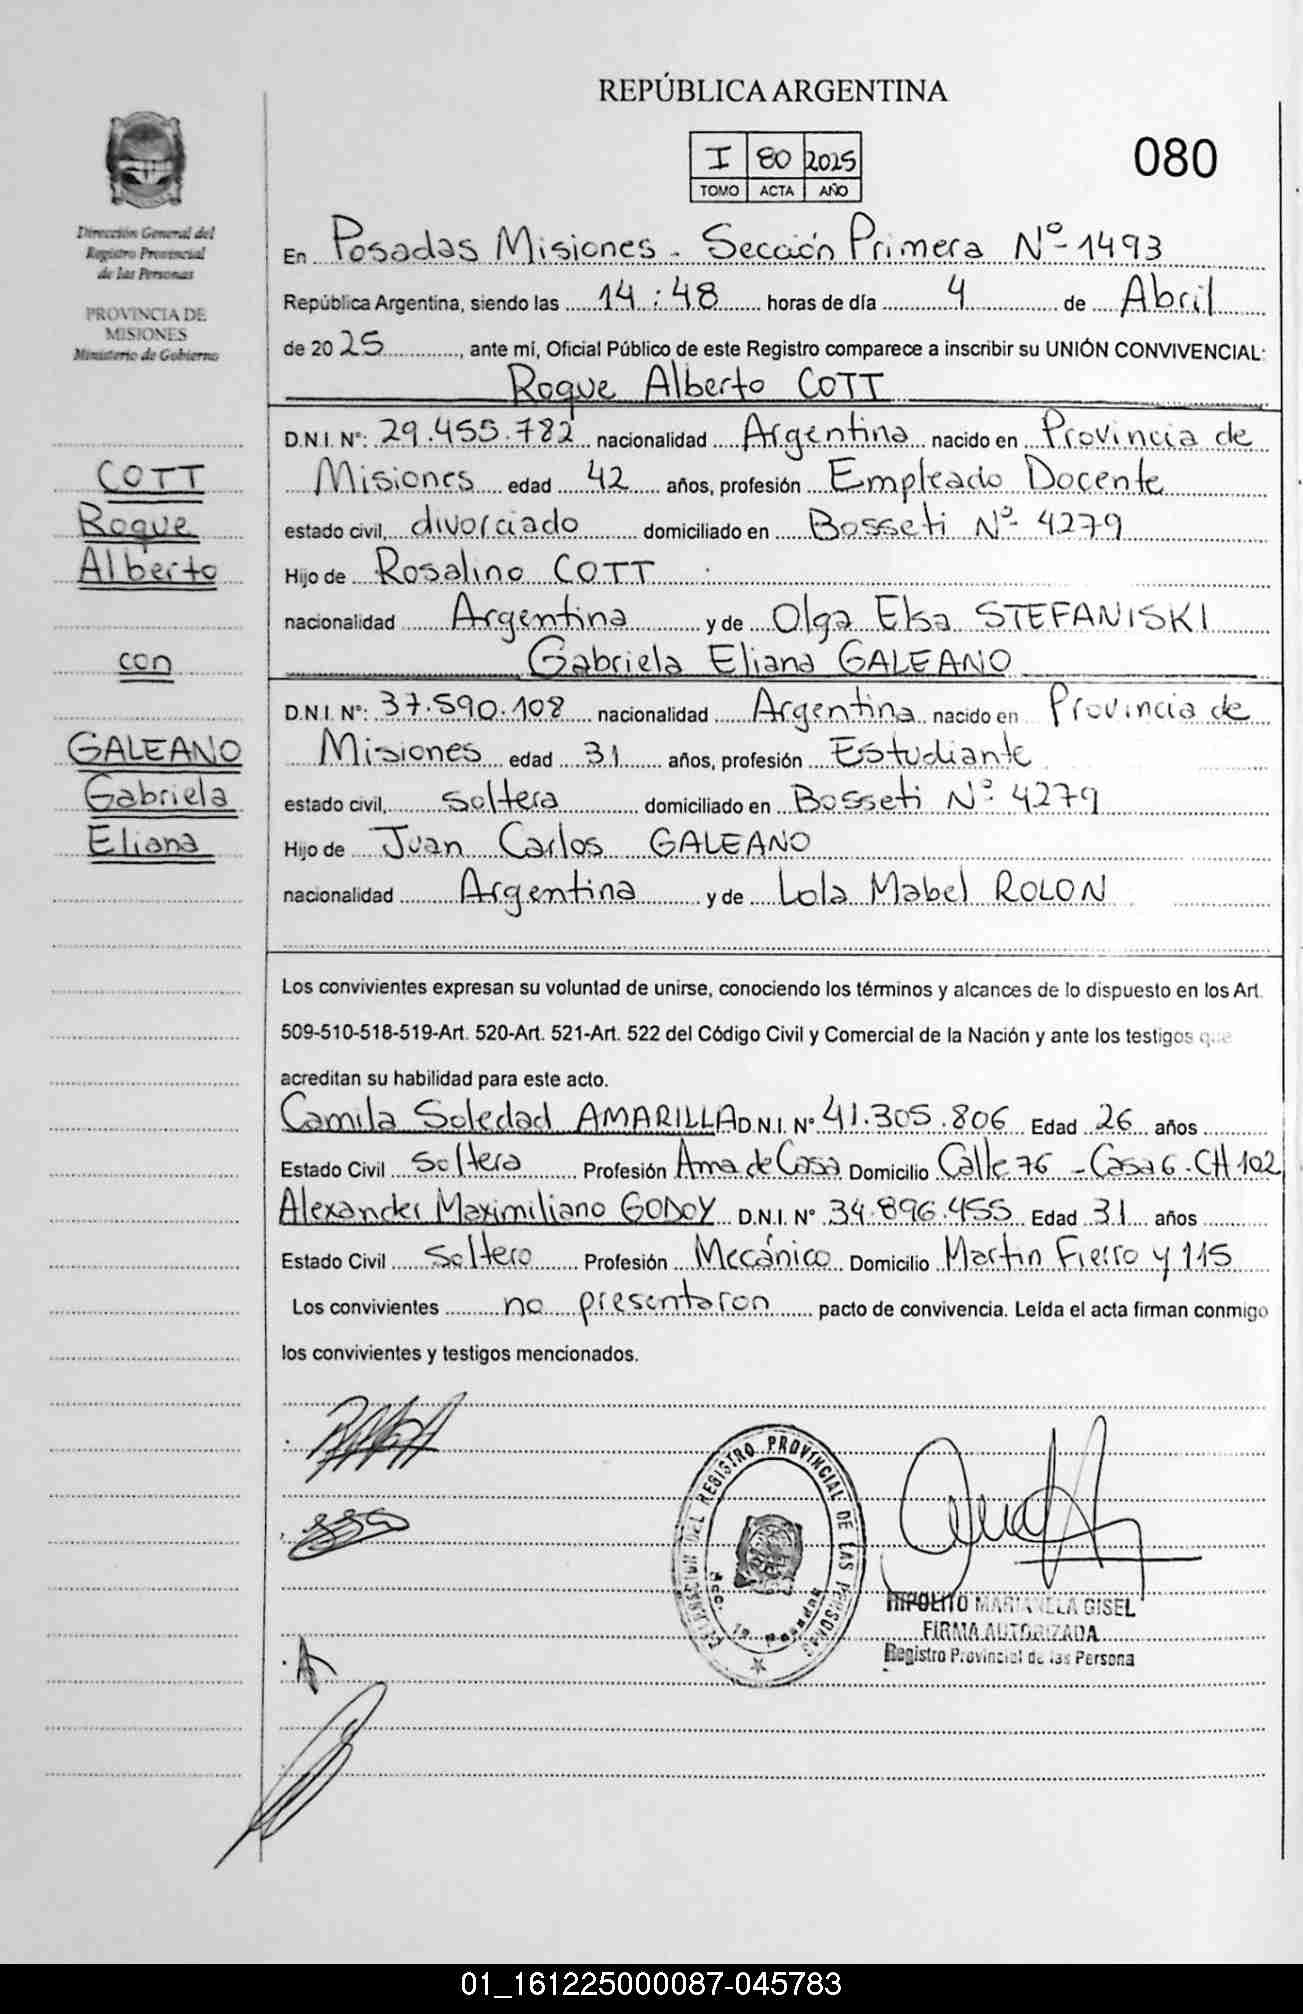 REPÚBLICA ARGENTINA
I 80 2025
TOMO ACTA AÑO
080
Dirección General del
Registro Provincial
de las Personas
PROVINCIA DE
MISIONES
Ministerio de Gobierno
En Posadas Misiones - Sección Primera Nº 1493
República Argentina, siendo las 14:48 horas de día 4 de Abril
de 2025, ante mí, Oficial Público de este Registro comparece a inscribir su UNIÓN CONVIVENCIAL:
Roque Alberto COTT
D.N.I. Nº: 29.455.782 nacionalidad Argentina nacido en Provincia de
Misiones edad 42 años, profesión Empleado Docente
estado civil, divorciado domiciliado en Bosseti Nº 4279
Hijo de Rosalino COTT
nacionalidad Argentina y de Olga Elsa STEFANISKI
Gabriela Eliana GALEANO
D.N.I. Nº: 37.590.108 nacionalidad Argentina nacido en Provincia de
Misiones edad 31 años, profesión Estudiante
estado civil, soltera domiciliado en Bosseti Nº 4279
Hijo de Juan Carlos GALEANO
nacionalidad Argentina y de Lola Mabel ROLON
COTT
Roque
Alberto
con
GALEANO
Gabriela
Eliana
Los convivientes expresan su voluntad de unirse, conociendo los términos y alcances de lo dispuesto en los Art.
509-510-518-519-Art. 520-Art. 521-Art. 522 del Código Civil y Comercial de la Nación y ante los testigos que
acreditan su habilidad para este acto.
Camila Soledad AMARILLA D.N.I. Nº 41.305.806 Edad 26 años
Estado Civil Soltera Profesión Ama de Casa Domicilio Calle 76 - Casa 6. CH 102
Alexander Maximiliano GODOY D.N.I. Nº 34.896.455 Edad 31 años
Estado Civil Soltero Profesión Mecánico Domicilio Martin Fierro y 115
Los convivientes no presentaron pacto de convivencia. Leída el acta firman conmigo
los convivientes y testigos mencionados.
DEL REGISTRO PROVINCIAL DE LAS PERSONAS
Sec. 1ª Posadas
HIPOLITO MARIANELA GISEL
FIRMA AUTORIZADA
Registro Provincial de las Persona
01_161225000087-045783